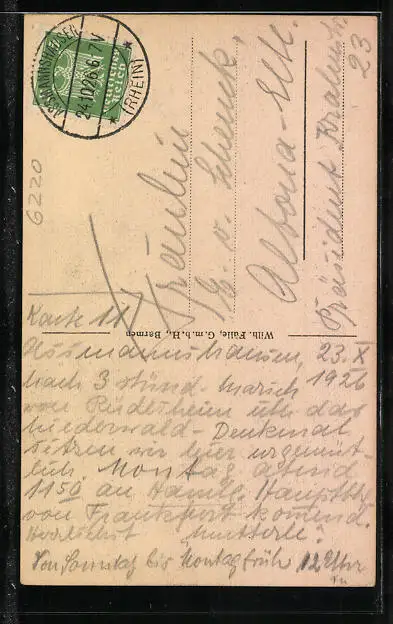 ASSMANNSHAUSEN
24.10.26. 6-7 V
(RHEIN)
Deutsches Reich
6220
Fräulein
E. v. Schenck,
Altona-Elbe.
Präsident Krahnstr.
23
Wilh. Fülle, G. m. b. H., Barmen
Karte II
Assmannshausen, 23. X
1926
Nach 3 stünd. Marsch
von Rüdesheim üb. das
Niederwald-Denkmal
sitzen wir hier urgemüt-
lich. Montag abend
11 50 an Hambg. Hauptbhf
von Frankfurt komend.
Herzlichst Mutterle.
Von Sonntag bis Montag früh 12 Uhr